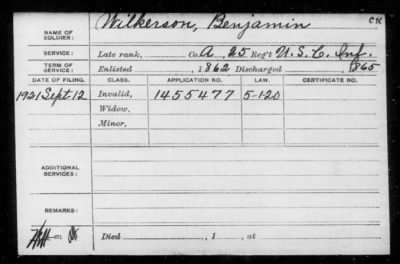 NAME OF SOLDIER: Wilkerson, Benjamin
SERVICE: Late rank, Co. A 25 Reg't U. S. C. Inf.
TERM OF SERVICE: Enlisted , 1862 Discharged , 1865
DATE OF FILING. CLASS. APPLICATION NO. LAW. CERTIFICATE NO.
1921 Sept 12 Invalid, 1455477 5-1-20
Widow,
Minor,
ADDITIONAL SERVICES:
REMARKS:
Died , 1 , at